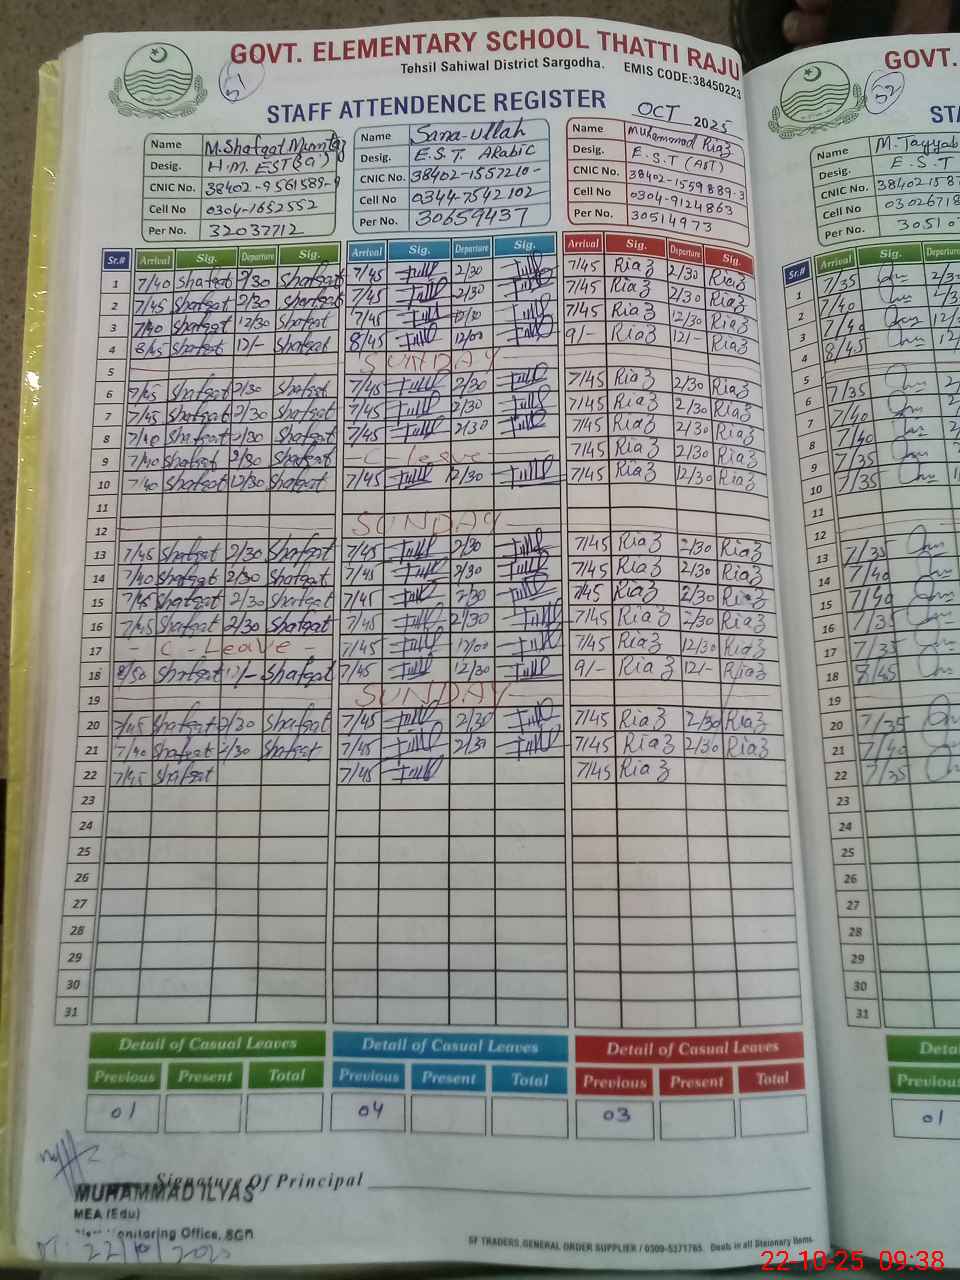 GOVT. ELEMENTARY SCHOOL THATTI RAJU
Tehsil Sahiwal District Sargodha. EMIS CODE:38450223
51
STAFF ATTENDENCE REGISTER OCT 2025
Name M.Shafqat Mumtaz Name Sana-ullah Name Muhammad Riaz
Desig. H.M. EST(Sci) Desig. E.S.T. ARabic Desig. E.S.T (AT)
CNIC No. 38402-9561589-9 CNIC No. 38402-1557210- CNIC No. 38402-1559889-3
Cell No 0304-1652552 Cell No 0344-7542102 Cell No 0304-9124863
Per No. 32037712 Per No. 30659437 Per No. 30514973
Sr.# Arrival Sig. Departure Sig. Arrival Sig. Departure Sig. Arrival Sig. Departure Sig.
1 7/40 Shafqat 2/30 Shafqat 7/45 2/30 7/45 Riaz 2/30 Riaz
2 7/45 Shafqat 2/30 Shafqat 7/45 2/30 7/45 Riaz 2/30 Riaz
3 7/40 Shafqat 12/30 Shafqat 7/45 12/30 7/45 Riaz 12/30 Riaz
4 8/45 Shafqat 12/- Shafqat 8/45 12/00 9/- Riaz 12/- Riaz
5 SUNDAY
6 7/45 Shafqat 2/30 Shafqat 7/45 2/30 7/45 Riaz 2/30 Riaz
7 7/45 Shafqat 2/30 Shafqat 7/45 2/30 7/45 Riaz 2/30 Riaz
8 7/40 Shafqat 2/30 Shafqat 7/45 2/30 7/45 Riaz 2/30 Riaz
9 7/40 Shafqat 2/30 Shafqat - C-leave - 7/45 Riaz 2/30 Riaz
10 7/40 Shafqat 12/30 Shafqat 7/45 12/30 7/45 Riaz 12/30 Riaz
11
12 SUNDAY
13 7/45 Shafqat 2/30 Shafqat 7/45 2/30 7/45 Riaz 2/30 Riaz
14 7/40 Shafqat 2/30 Shafqat 7/45 2/30 7/45 Riaz 2/30 Riaz
15 7/45 Shafqat 2/30 Shafqat 7/45 2/30 7/45 Riaz 2/30 Riaz
16 7/45 Shafqat 2/30 Shafqat 7/45 2/30 7/45 Riaz 2/30 Riaz
17 - C-Leave - 7/45 12/00 7/45 Riaz 12/30 Riaz
18 8/50 Shafqat 12/- Shafqat 7/45 12/30 9/- Riaz 12/- Riaz
19 SUNDAY
20 7/45 Shafqat 2/30 Shafqat 7/45 2/30 7/45 Riaz 2/30 Riaz
21 7/40 Shafqat 2/30 Shafqat 7/45 2/30 7/45 Riaz 2/30 Riaz
22 7/45 Shafqat 7/45 7/45 Riaz
23
24
25
26
27
28
29
30
31
Detail of Casual Leaves Detail of Casual Leaves Detail of Casual Leaves
Previous Present Total Previous Present Total Previous Present Total
01 04 03
Signature Of Principal
MUHAMMAD ILYAS
MEA (Edu)
Monitoring Office, SGD
DT: 22/10/2025
SF TRADERS,GENERAL ORDER SUPPLIER / 0309-5371765. Deals in all Stationary Items.
GOVT.
52
ST
Name M. Tayyab
Desig. E.S.T
CNIC No. 38402158
Cell No 03026718
Per No. 3051
Sr.# Arrival Sig. Departure
1 7/35 2/3
2 7/40
3 7/40 12/
4 8/45 12/
5
6 7/35
7 7/40
8 7/40
9 7/35
10 7/35
11
12
13 7/35
14 7/40
15 7/40
16 7/35
17 7/35
18 8/45
19
20 7/35
21 7/40
22 7/35
23
24
25
26
27
28
29
30
31
Detai
Previous
01
22-10-25 09:38